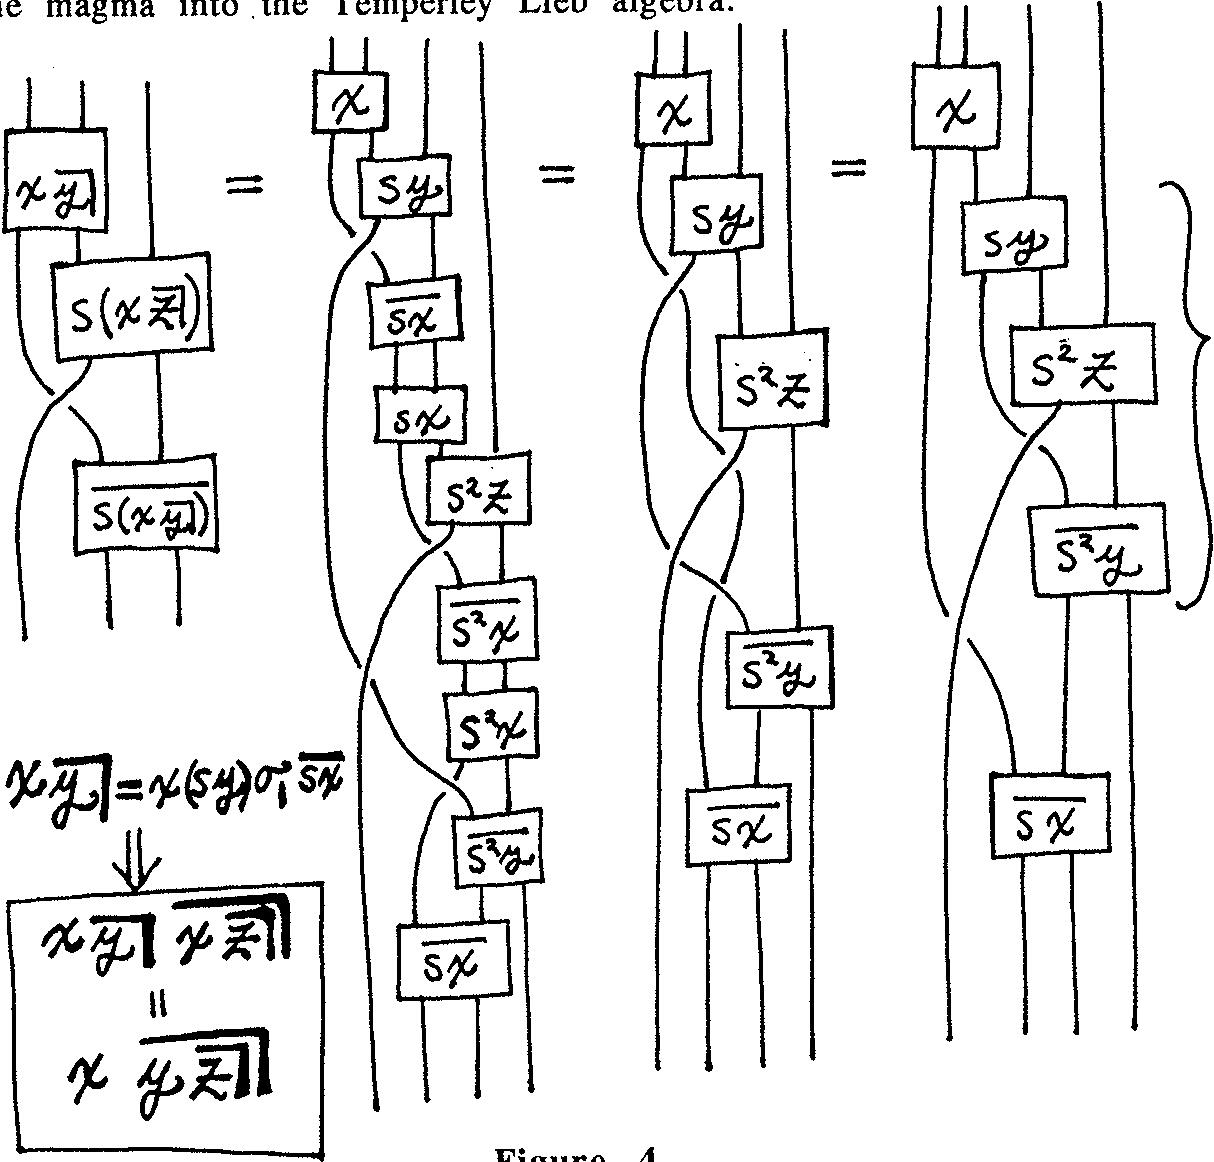 ne magma into the Temperley Lieb algebra.
x y̅|
S(x z̅|)
S(x y̅|)‾
=
x
sy
s̅x̅
sx
S²z
S̅²̅x̅
S²x
S̅²̅y̅
s̅x̅
=
x
sy
S²z
S̅²̅y̅
s̅x̅
=
x
sy
S²z
S̅²̅y̅
s̅x̅
x y̅| = x(sy)σ₁ s̅x̅
⇓
x y̅| x z̅|‾|
=
x y z̅|‾|
Figure 4